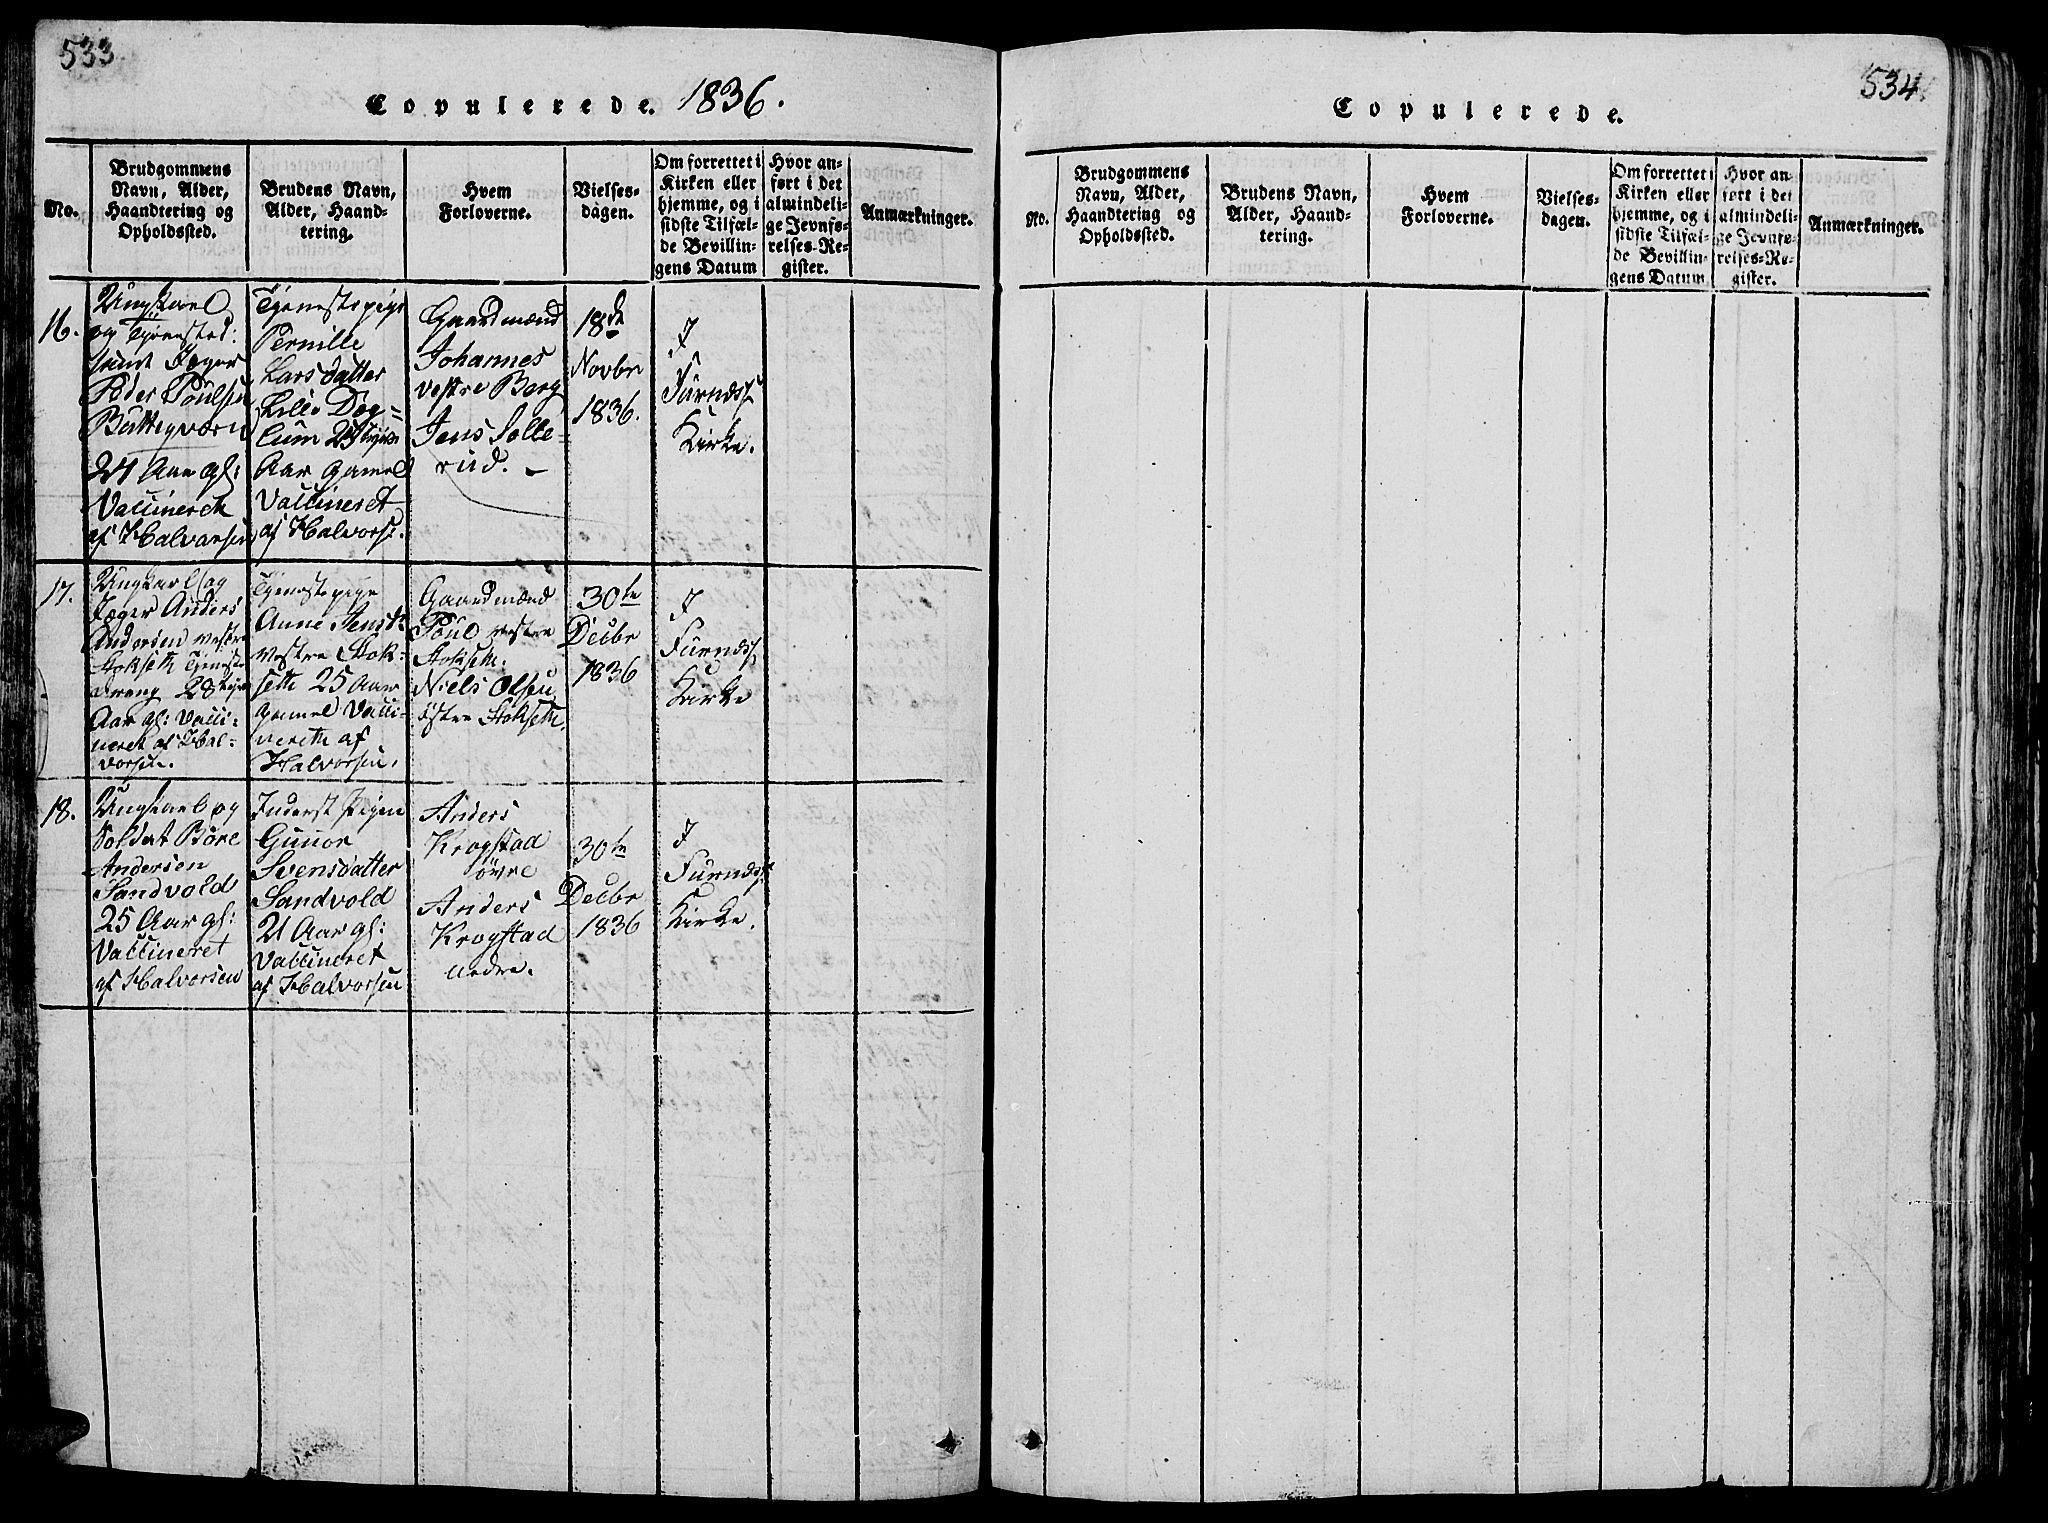 533.
Copulerede. 1836.
No.
Brudgommens
Navn, Alder,
Haandtering og
Opholdssted.
Brudens Navn,
Alder, Haand-
tering.
Hvem
Forloverne.
Vielses-
dagen.
Om forrettet i
Kirken eller
hjemme, og i
sidste Tilfæl-
de Bevillin-
gens Datum
Hvor an-
ført i det
almindeli-
ge Jevnfø-
relses-Re-
gister.
Anmærkninger.
16.
Ungkarl
og
Jæger
Peder Poulsen
24 Aar gl:
Vaccineret
af Halvorsen
Tjenestepige
Pernille
Larsdatter
Lille Dæg-
lum 23
Aar gamel
Vaccineret
af Halvors:
Gaardmænd
Johannes
vestre Berg
Jens Solle-
rud.
18de
Novbr
1836.
I
Furnæss
Kirke.
17.
Ungkarl og
Jæger Anders
Andersen vestre
Stokseth Tjeneste
dreng 28
Aar gl: Vacci-
neret af Hal-
vorsen.
Tjenestepige
Anne Jensdr
vestre Stok-
seth 25 Aar
gamel Vacci-
nereth af
Halvorsen.
Gaardmænd
Poul vestre
Stokseth.
Niels Olsen
østre Stokseth.
30te
Decbr
1836
I
Furnæss
Kirke
18.
Ungkarl og
Soldat Børe
Andersen
Sandvold
25 Aar gl:
Vaccineret
af Halvorsen
Inderst Pigen
Gunor
Svensdatter
Sandvold
21 Aar gl:
Vaccineret
af Halvorsen
Anders
Krogstad
øvre
Anders
Krogstad
nedre.
30te
Decbr
1836
I
Furnæss
Kirke.
534.
Copulerede.
No.
Brudgommens
Navn, Alder,
Haandtering og
Opholdssted.
Brudens Navn,
Alder, Haand-
tering.
Hvem
Forloverne.
Vielses-
dagen.
Om forrettet i
Kirken eller
hjemme, og i
sidste Tilfæl-
de Bevillin-
gens Datum
Hvor an-
ført i det
almindeli-
ge Jevnfø-
relses-Re-
gister.
Anmærkninger.